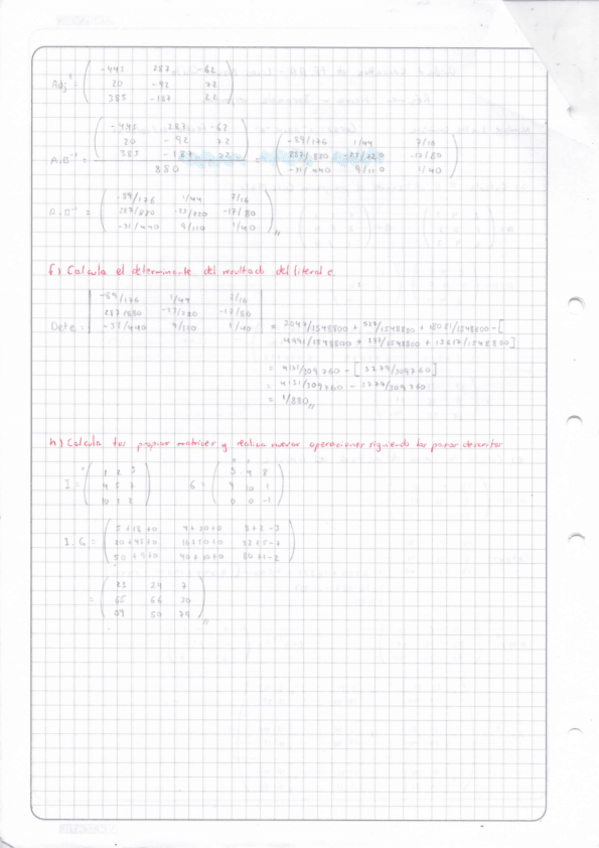 Adj^t = ( -443 287 -62
20 -92 72
385 -187 22 )
A.B^-1 = ( -443 287 -62
20 -92 72
383 -187 22 ) / 880 = ( -89/176 1/44 7/16
287/880 -23/220 -17/80
-31/440 9/110 1/40 )
A.B^-1 = ( -89/176 1/44 7/16
287/880 -23/220 -17/80
-31/440 9/110 1/40 )
f) Calcula el determinante del resultado del literal e.
Det e = | -89/176 1/44 7/16
287/880 -23/220 -17/80
-31/440 9/110 1/40 |
= 4131/309760 - [ 3779/309760 ]
= 4131/309760 - 3779/309760
= 1/880,,
h) Calcula tus propias matrices y realiza nuevas operaciones siguiendo los pasos descritos
I = ( 1 2 3
4 5 7
10 1 2 )
G = ( 5 4 8
9 10 1
0 0 -1 )
I.G = ( 5+18+0 4+20+0 8+2-3
20+45+0 16+50+0 32+5-7
50+9+0 40+10+0 80+1-2 )
= ( 23 24 7
65 66 30
59 50 79 ),,